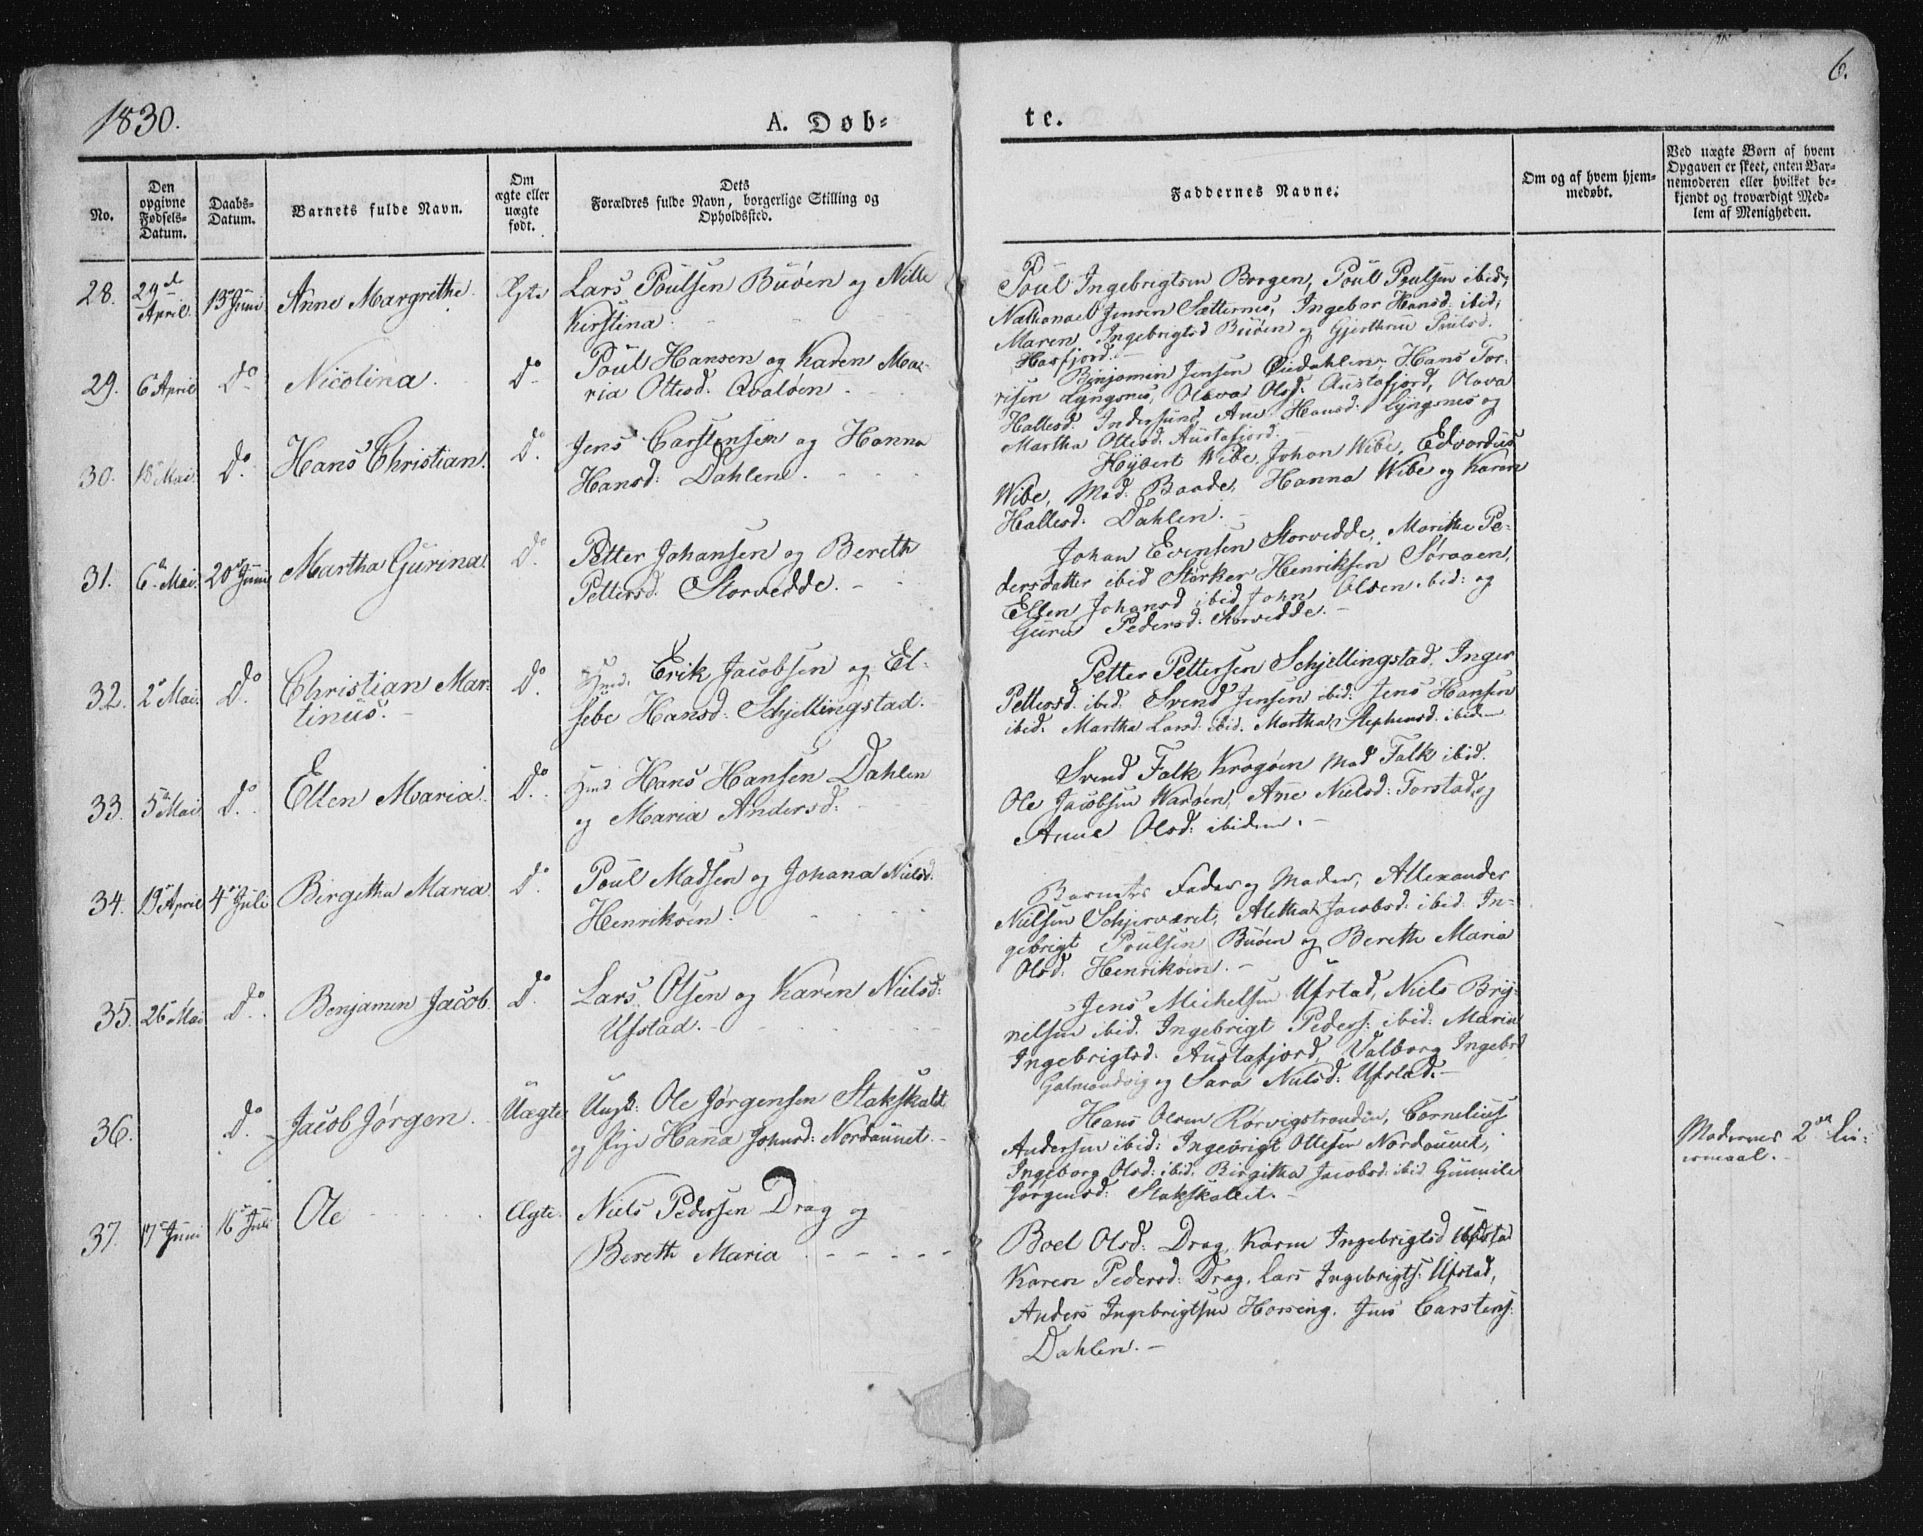 1830.
A. Døb-
te.
6.
No.
Den opgivne Fødsels-Datum.
Daabs-Datum.
Barnets fulde Navn.
Om ægte eller uægte født.
Dets
Forældres fulde Navn, borgerlige Stilling og
Opholdssted.
Faddernes Navne.
Om og af hvem hjem-
medøbt.
Ved uægte Børn af hvem
Opgaven er skeet, enten Bar-
nemoderen eller hvilket be-
kjendt og troværdigt Med-
lem af Menigheden.
28. 29de April 13 Juni Anne Margrethe. Ægte Lars Poulsen Buøen og Nille
Kirstina.
Poul Ingebrigtsen Borgen, Poul Poulsen ibid;
Nathanael Jensen Sætternes, Ingebor Hansd: ibid;
Maren Ingebrigtsd Buøen og Gjerthrue Poulsd.
Hasfjord.
29. 6 April Do Nicolina. Do Poul Hansen og Karen Ma-
ria Ottesd. Qvaløen.
Benjamin Jensen Hans Tor-
risen Lyngsnes, Olava Olsd: Austafjord, Olava
Hallesd. Indersund, Ane Hansd: Lyngsnes og
Martha Ottesd. Austafjord.
30. 18 Mai Do Hans Christian. Do Jens Carstensen og Hanna
Hansd: Dahlen.
Hybert Wibe, Johan Wibe, Edvardus
Wibe, Mad: Baade, Hanna Wibe og Karen
Hallesd. Dahlen.
31. 6 Mai. 20 Juni Martha Gurina. Do Petter Johansen og Bereth
Pettersd. Storvedde.
Johan Evensen Storvedde, Marithe Pe-
dersdatter ibid Størker Henriksen Søraaen,
Ellen Johansd ibid John Olsen ibid: og
Guru Pedersd. Storvedde.
32. 2 Mai. Do Christian Mar-
tinus. Do Huusd. Erik Jacobsen og El-
sebe Hansd: Schjellingstad.
Petter Pettersen Schjellingstad, Inger
Pettersd. ibid. Svend Jensen ibid: Jens Hansen
ibid. Martha Larsd. ibid. Martha Stephensd. ibidem
33. 5 Mai Do Ellen Maria. Do Hans Hansen Dahlen
og Maria Andersd:
Svend Falk Krogøen Mad Falk ibid.
Ole Jacobsen Warøen, Ane Nielsd: Torstad, og
Anne Olsd: ibidem.
34. 19 April 4 Juli Birgitha Maria Do Poul Madsen og Johana Nielsd.
Henrikøen.
Barnets Fader og Moder, Allexander
Nielsen Schjerværet, Aletha Jacobsd: ibid. In-
gebrigt Poulsen Buøen og Bereth Maria
Olsd. Henrikøen.
35. 26 Mai Do Benjamin Jacob. Do Lars Olsen og Karen Nielsd:
Ufstad.
Jens Michelsen Ufstad, Niels Bry-
nelsen ibid. Ingebrigt Peders: ibid: Maria
Ingebrigtsd. Austafjord, Valborg Ingebrd
og Sara Nielsd: Ufstad.
36. Do Jacob Jørgen. Uægte. Ungk: Ole Jørgensen Stakskalt
og Pige Hana Johnsd: Nordaunet.
Hans Olsen Rørvigstranden, Cornelius
Andersen ibid: Ingebrigt Ottesen Nordaunet,
Ingeborg Olsd: ibid. Birgitha Jacobsd ibid Gunnile
Jørgensd: Stakskallet.
Moderens 2det Lei-
ermaal.
37. 17 Juni 16 Juli Ole Ægte. Niels Pedersen Drag og
Bereth Maria
Boel Olsd: Drag, Karen Ingebrigtsd Ufstad
Karen Pedersd: Drag, Lars Ingebrigts: Ufstad,
Anders Ingebrigtsen Horseng, Jens Carstens:
Dahlen.